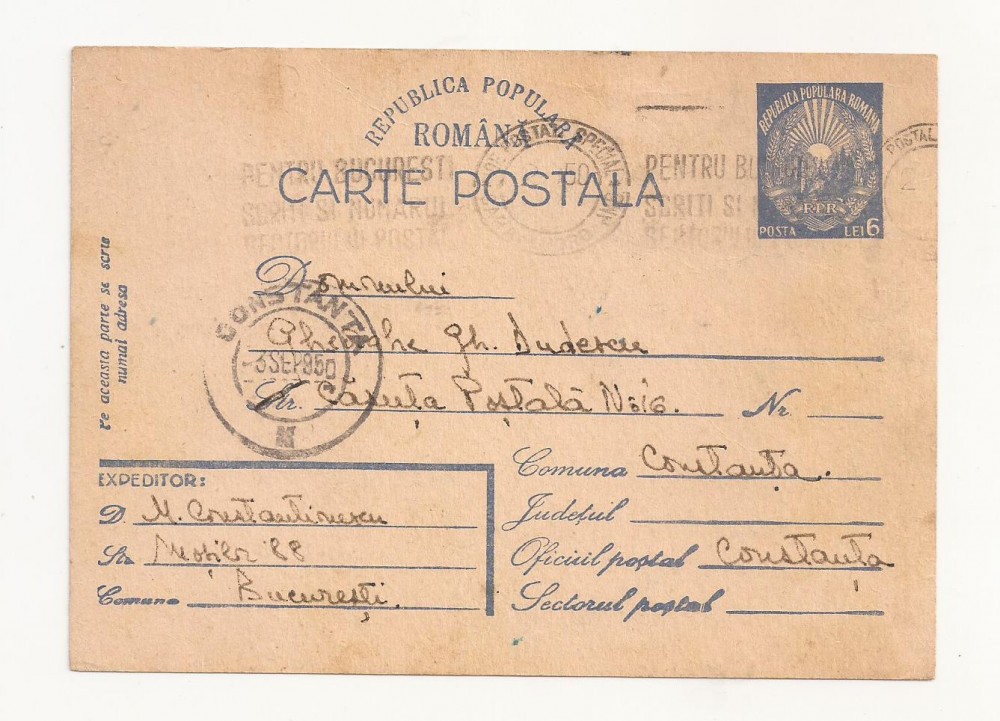 REPUBLICA POPULARA
ROMÂNĂ
CARTE POSTALA
REPUBLICA POPULARA ROMANA
R.P.R
POSTA LEI 6
PENTRU BUCURESTI
SCRITI SI NUMARUL
SECTORULUI POSTAL
POSTAL SPECIAL
50
PENTRU BUCURESTI
SCRITI SI
POSTAL
2
Pe aceasta parte se scrie
numai adresa
Domnului
Gheorghe Gh. Dudescu
Str. Căsuța Poștală No 16. Nr.
CONSTANTA
3 SEP 950
Comuna Constanța.
Județul
Oficiul poștal Constanța
Sectorul poștal
EXPEDITOR:
D. M. Constantinescu
Str. Moșilor 88
Comuna București.